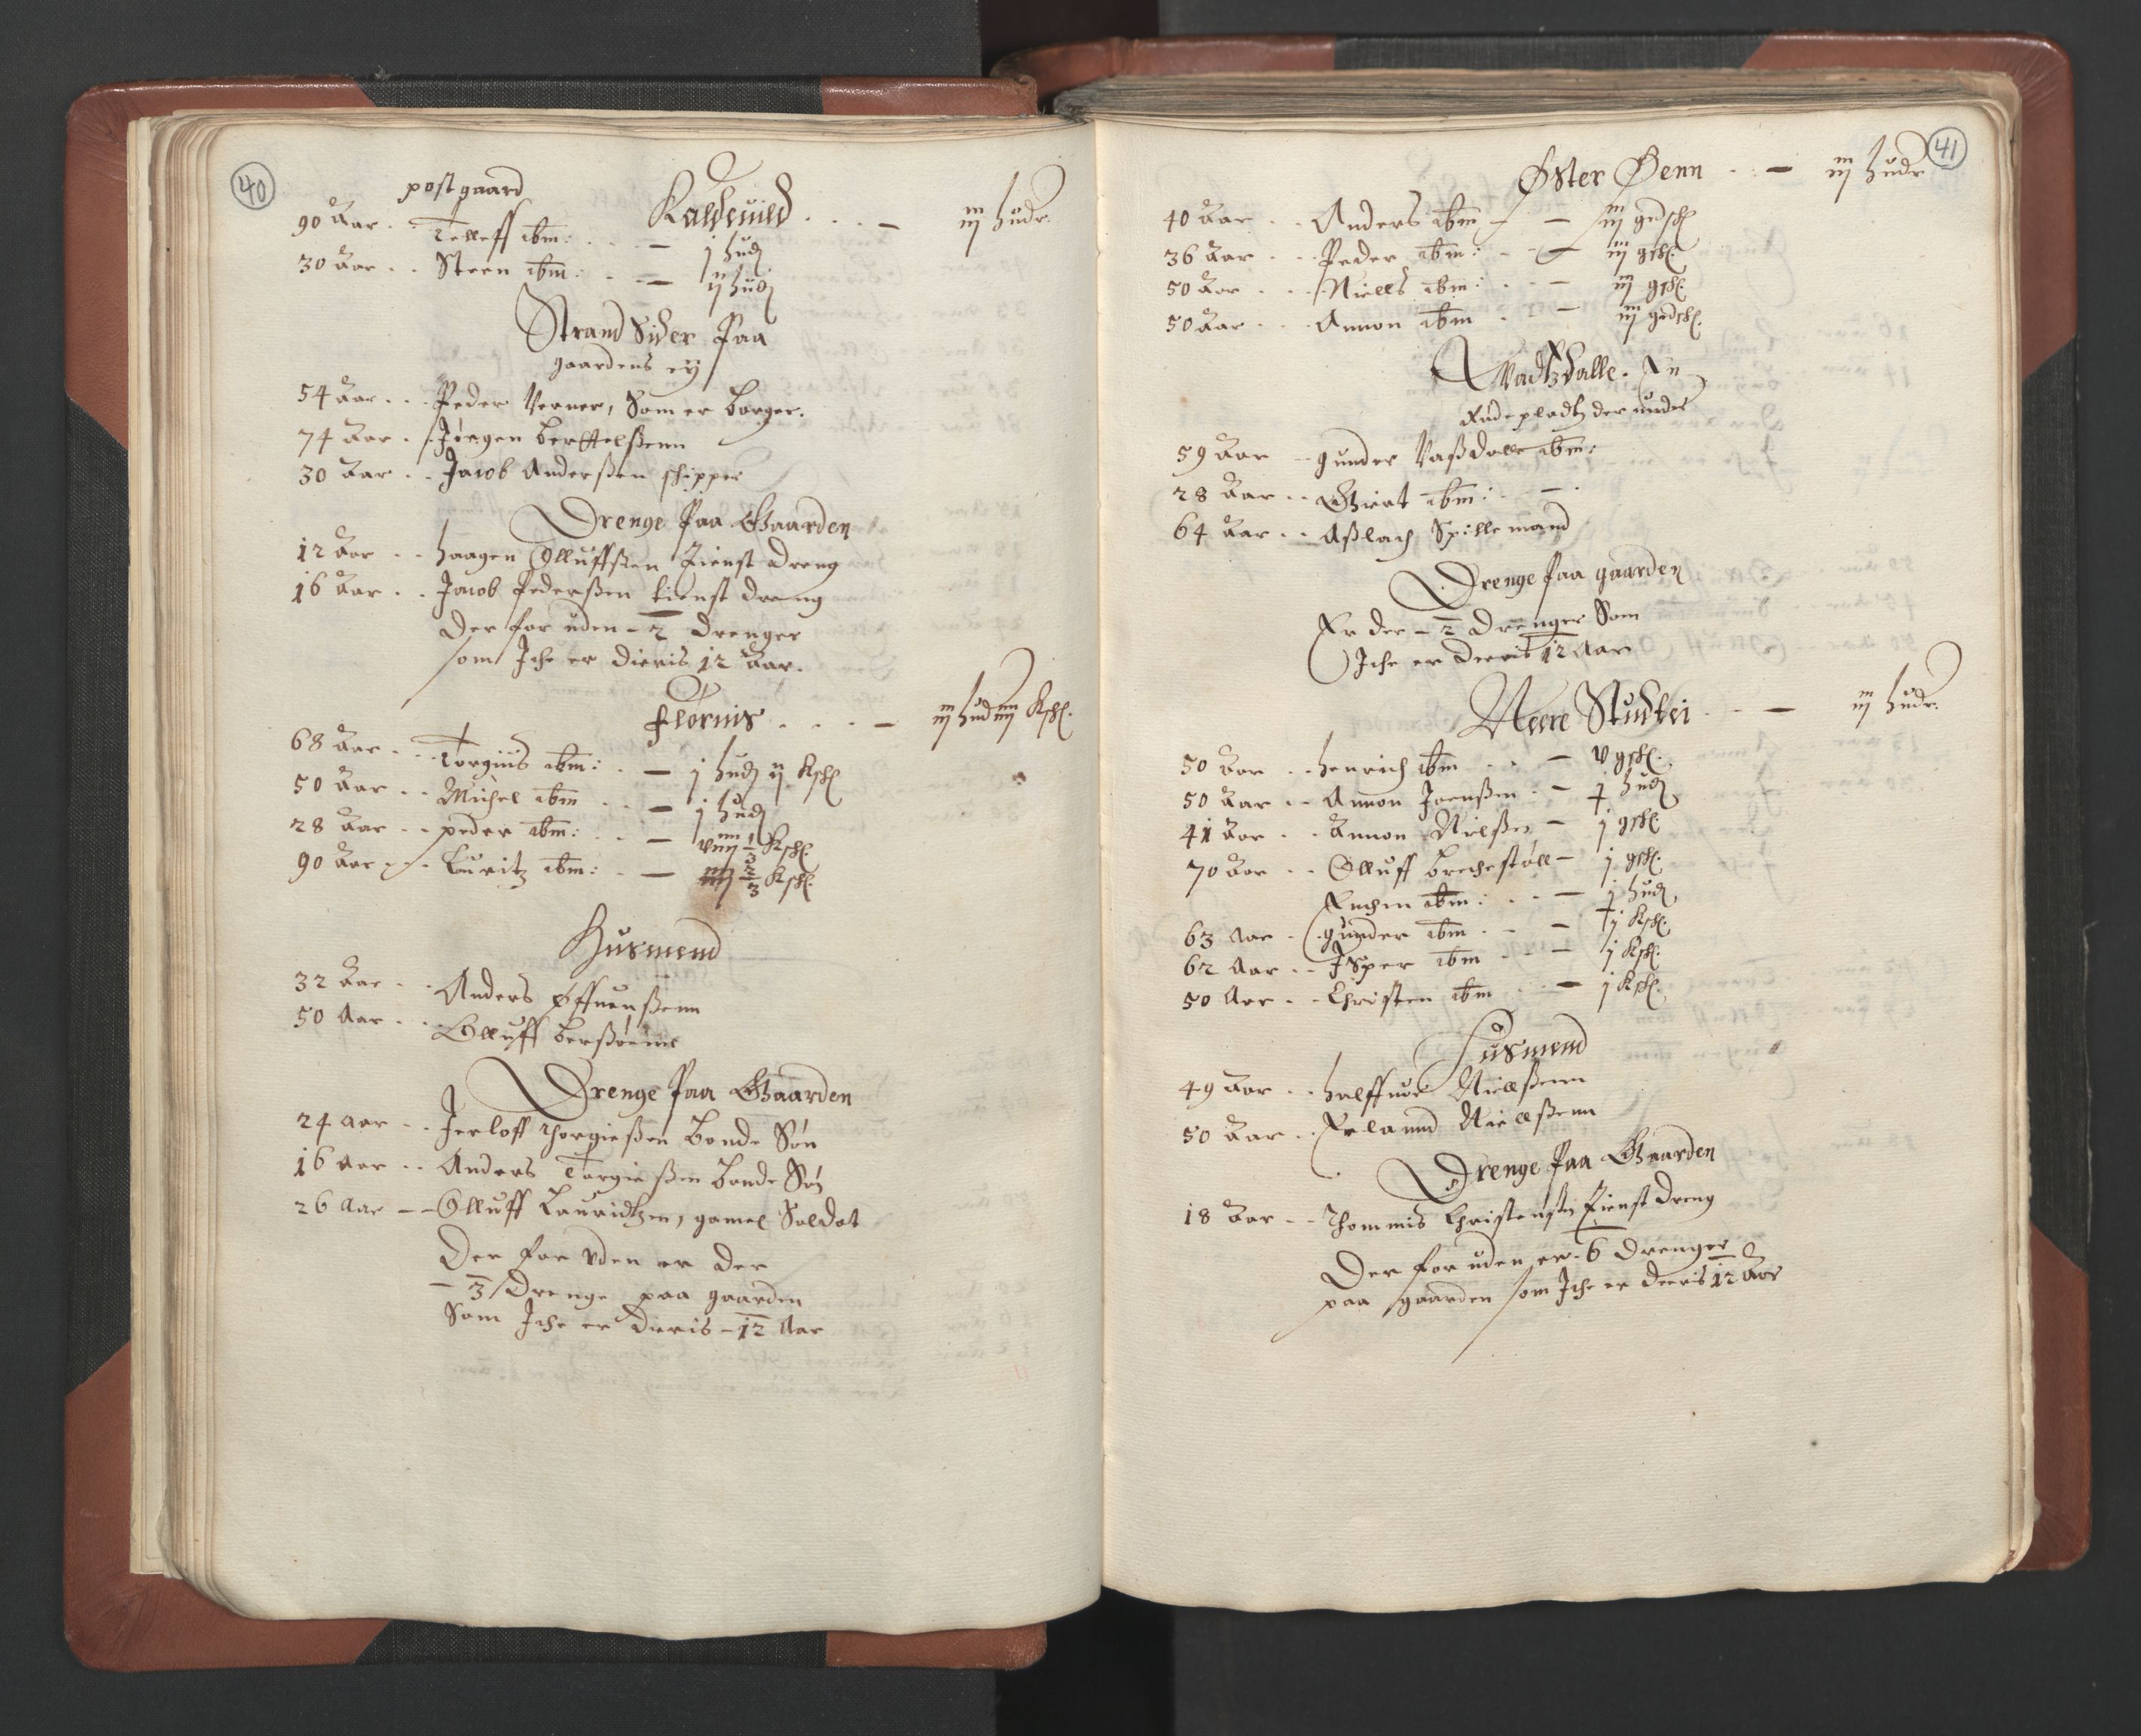 40
postgaard
Kaldeuild . . . – iij hudr.
90 Aar . . Telleff ibm: . . – j hud
30 Aar . . Steen ibm: . . – ij hud
Strand Sider Paa
gaardens ey
54 Aar . . Peder Verner, Som er borger.
74 Aar . Jørgen berttelßenn
30 Aar . . Jacob Anderßen schipper
Drenge Paa Gaarden
12 Aar . . haagen Olluffsen Tienst dreng
16 Aar . . Jacob Pederßen tienst dreng
Der for uden – 2 drenger
som Iche er dieris 12 Aar.
Flørnis . . . – iij hud iiij Ksch.
68 Aar . . Torgius ibm: . – j hud ij Ksch
50 Aar . . Michel ibm . . – j hud
28 Aar . . peder ibm: . . – viiij 1/3 Ksch.
90 Aar . . Lauritz ibm: . – 2/3 Ksch.
Husmend
32 Aar . . Anders Øffuenßenn
50 Aar . . Olluff
Drenge Paa Gaarden
24 Aar . . Jerloff Thorgießen Bonde Søn
16 Aar . . Anders Torgießen bonde Søn
26 Aar – – Olluff Lauridtzen, gamel Soldat
Der for uden er der
– 3 Drenge paa gaarden
Som Iche er dieris – 12 Aar
41
Øster Øenn . . – iij hudr
40 Aar . . Anders ibm – – iij gedsch
36 Aar . . Peder ibm: – – iij gsch.
50 Aar . . Niells ibm: . . – iij gsch.
50 Aar . . Amon ibm . . – iij gedsch.
Vadtzdalle. En
Ødepladtz der under
59 Aar – gunder Vaßdalle ibm:
28 Aar . . Giert ibm: . –
64 Aar . . Aßlach Spillemand
Drenge paa gaarden
Er der – 2 Drenger Som
Iche er dieris 12 Aar
Neere Studlei . . – iij hudr.
50 Aar . . henrich ibm . . – v gsch.
50 Aar . . Amon Joenßen . – j hud
41 Aar . . Amon Nielßen – j gsch.
70 Aar . . Olluff brechestøll – j gsch.
Enchen ibm: . . – j hud,
63 Aar . gunder ibm . . – j Ksch.
62 Aar . . Jsper ibm . . – j Ksch.
50 Aar . . Christen ibm . . – j Ksch.
Husmend
49 Aar . . halffuor Niellßenn
50 Aar . . Erlannd Niellßenn
Drenge Paa Gaarden
18 Aar – – Thommis Christensen Tienst dreng
Der for uden er 6 drenger
paa gaarden som Iche er deeris 12 Aar